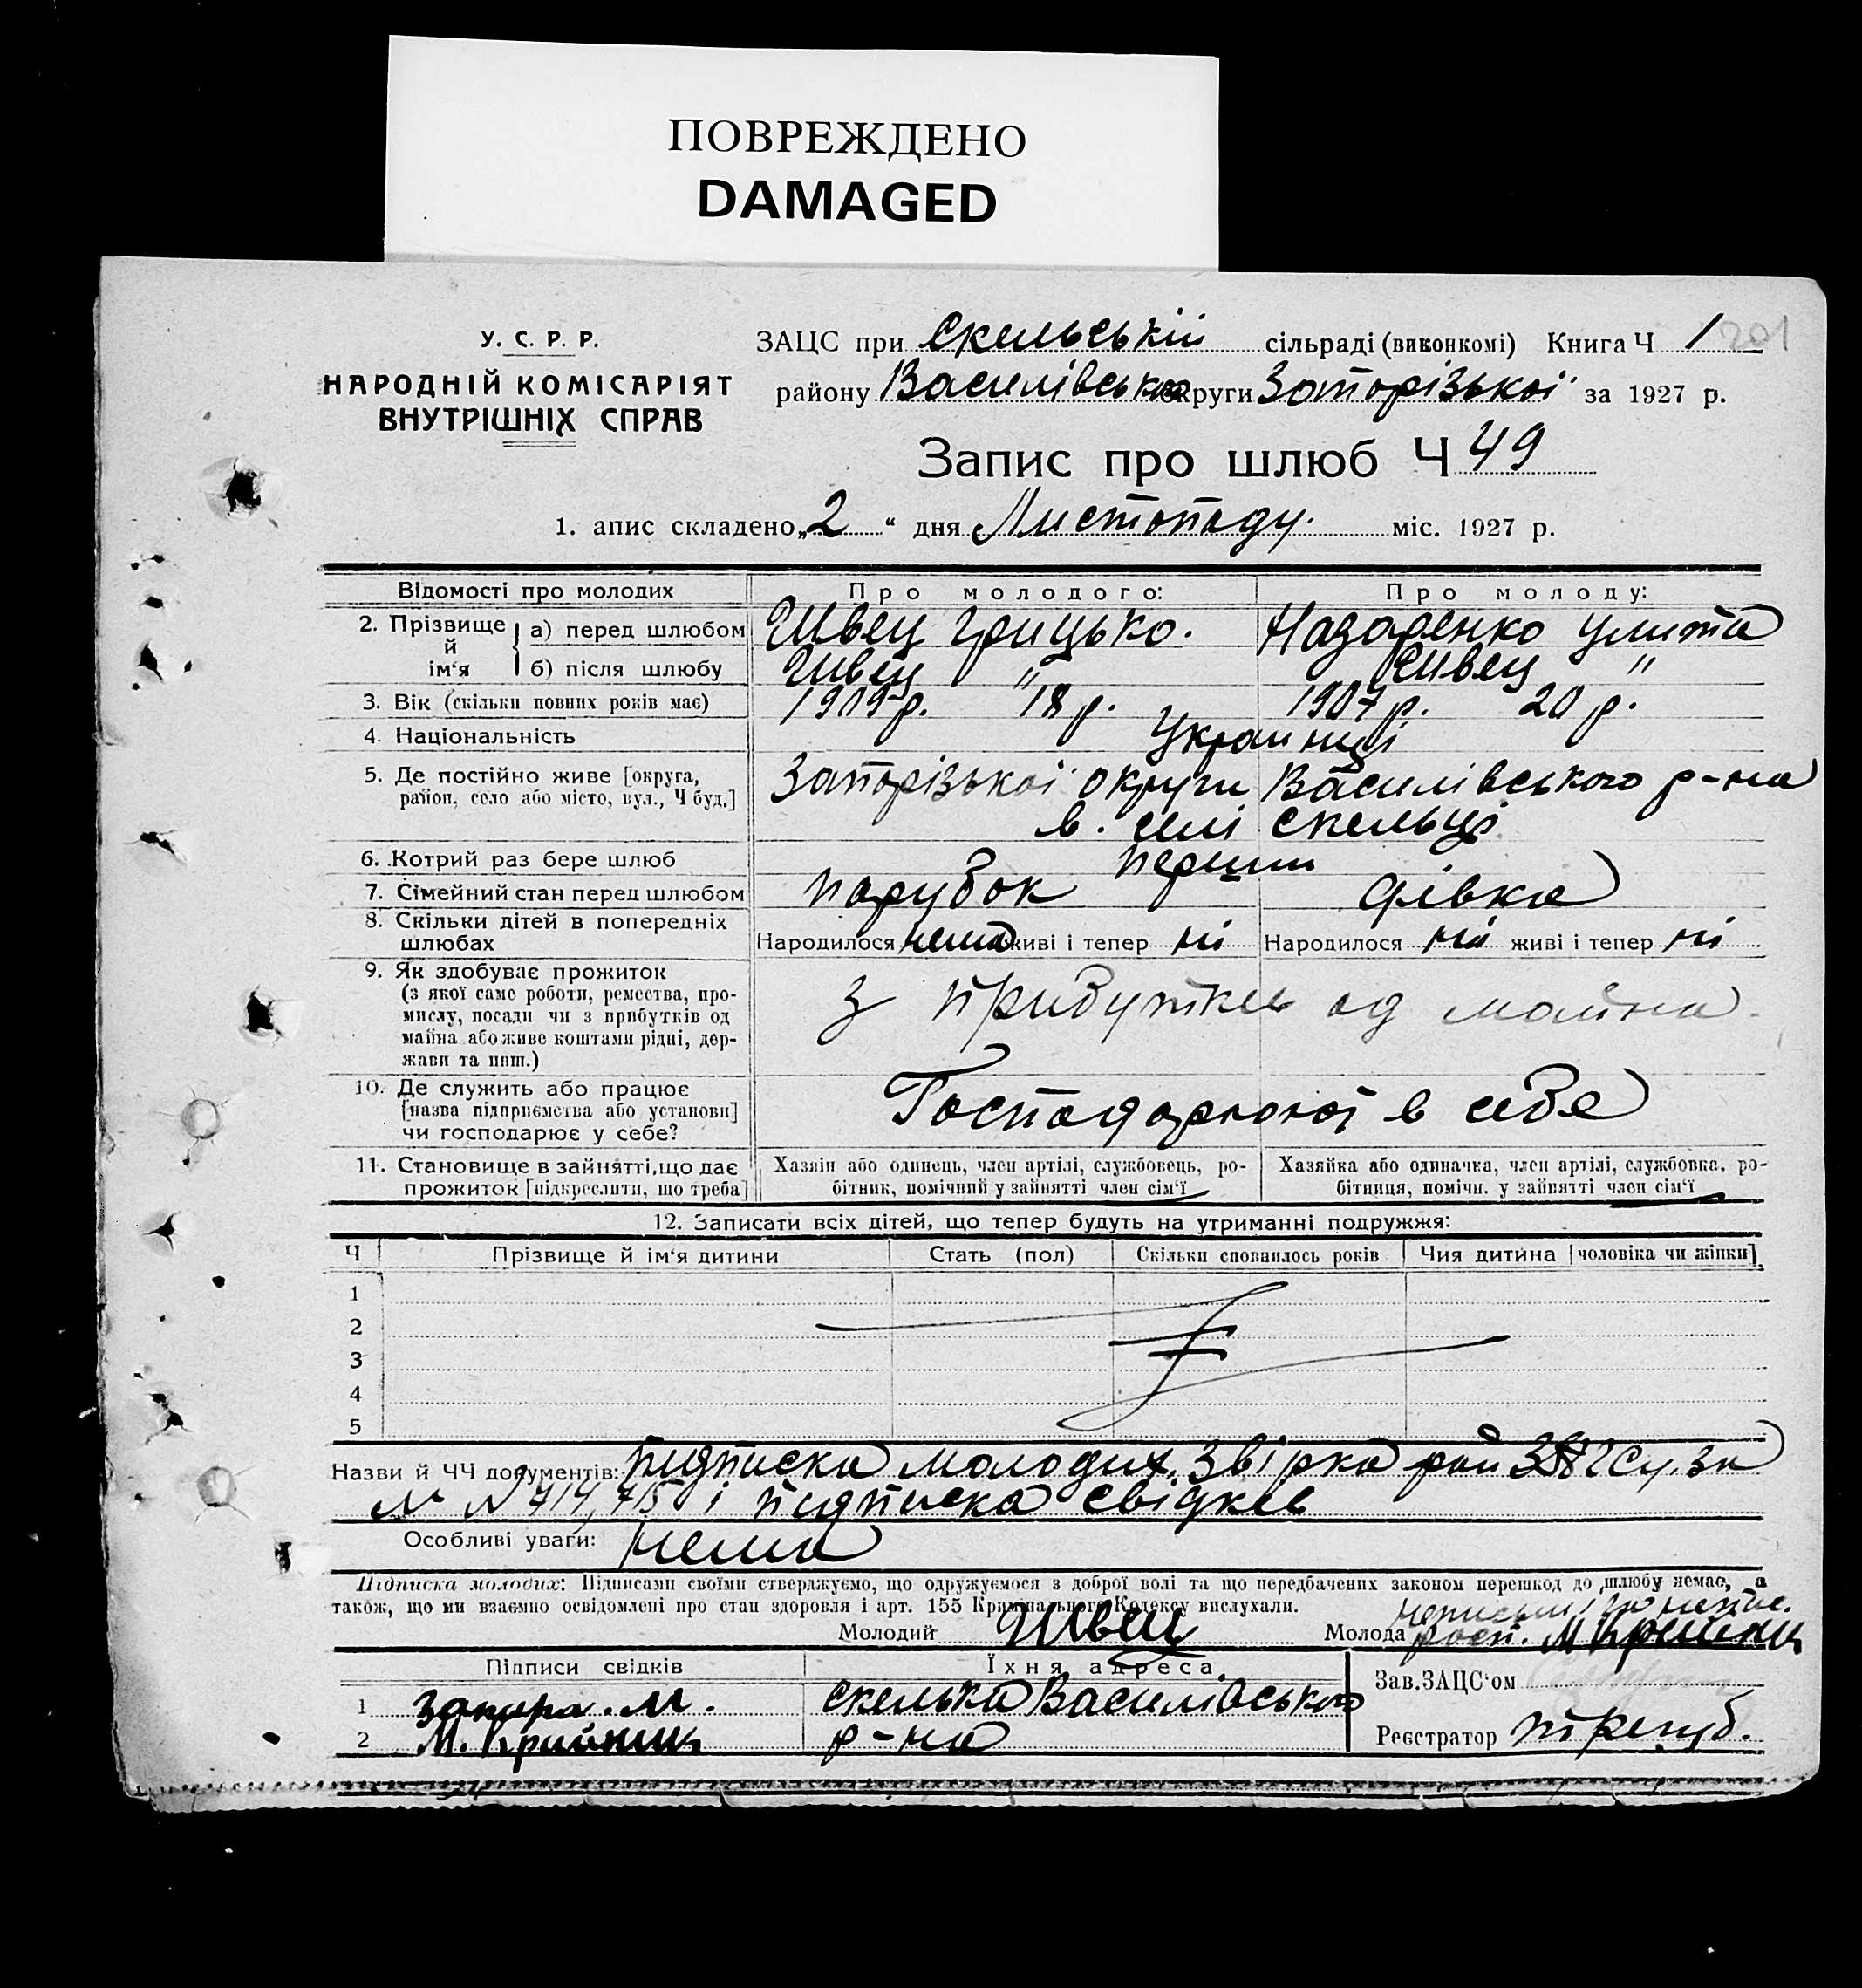 ПОВРЕЖДЕНО
DAMAGED
У. С. Р. Р.
НАРОДНІЙ КОМІСАРІЯТ
ВНУТРІШНІХ СПРАВ
ЗАЦС при Скельській сільраді (виконкомі) Книга Ч 1 201
району Василівсько округи Запорізької за 1927 р.
Запис про шлюб Ч 49
1. апис складено „2“ дня Листопаду міс. 1927 р.
Відомості про молодих Про молодого: Про молоду:
2. Прізвище й ім‘я а) перед шлюбом Швец Грицько. Назаренко Улита
б) після шлюбу Швец " Швец "
3. Вік (скільки повних років має) 1909 р. 18 р. 1907 р. 20 р.
4. Національність Украинці
5. Де постійно живе [округа, район, село або місто, вул., Ч буд.] Запорізької округи Василівського р-на
в. селі Скельці
6. Котрий раз бере шлюб перший
7. Сімейний стан перед шлюбом парубок дівка
8. Скільки дітей в попередніх шлюбах Народилося нема живі і тепер ні Народилося ні живі і тепер ні
9. Як здобуває прожиток
(з якої саме роботи, ремества, про-
мислу, посади чи з прибутків од
майна або живе коштами рідні, дер-
жави та инш.) з прибутків од майна
10. Де служить або працює
[назва підприємства або установи]
чи господарює у себе? Господарюют в себе
11. Становище в зайнятті, що дає
прожиток [підкреслити, що треба]
Хазяїн або одинець, член артілі, службовець, ро-
бітник, помічний у зайнятті член сім‘ї
Хазяйка або одиначка, член артілі, службовка, ро-
бітниця, помічн. у зайнятті член сім‘ї
12. Записати всіх дітей, що тепер будуть на утриманні подружжя:
Ч Прізвище й ім‘я дитини Стать (пол) Скільки сповнилось років Чия дитина [чоловіка чи жінки]
1
2
3
4
5
Назви й ЧЧ документів: підписка молодих, Звірка рай ЗАГСу. за
№ № 714, 715 і підписка свідків
Особливі уваги: нема
Підписка молодих: Підписами своїми стверджуємо, що одружуємося з доброї волі та що передбачених законом перешкод до шлюбу немає, а
також, що ми взаємно освідомлені про стан здоровля і арт. 155 Кримінального Кодексу вислухали.
Молодий Швец Молода
Підписи свідків Їхня адреса
1 Запара. М. Скелька Василівського
2 М. р-на
Зав. ЗАЦС‘ом
Реєстратор